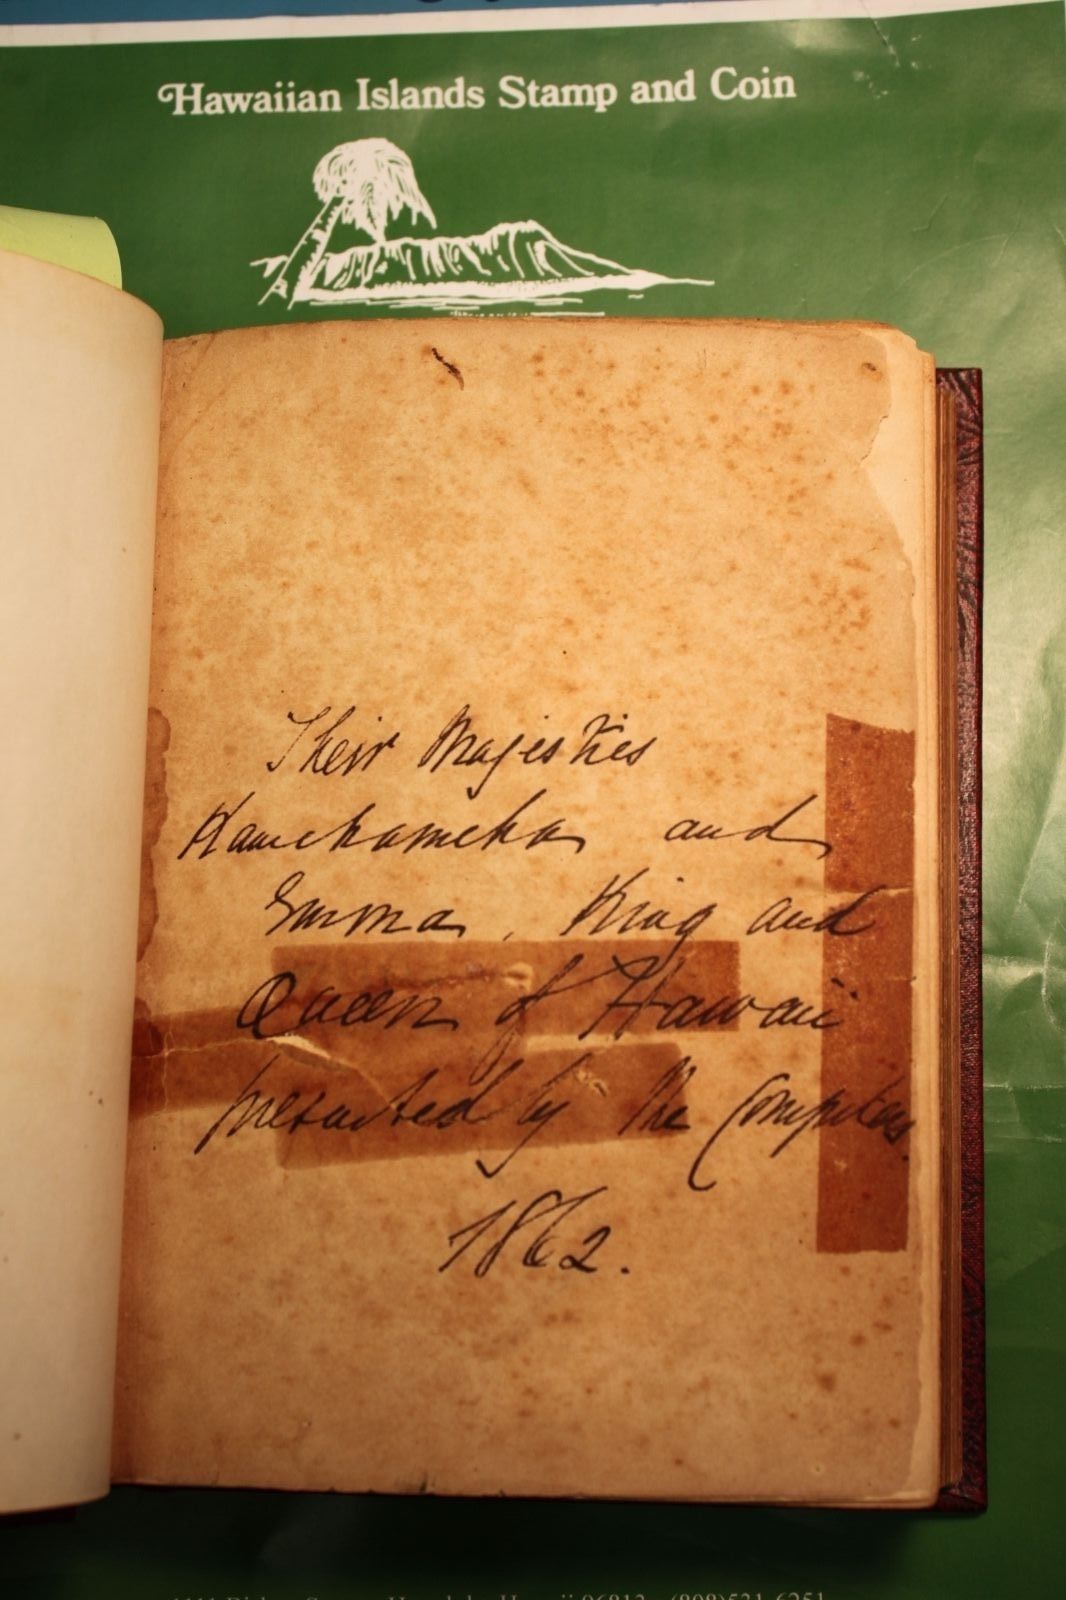 Hawaiian Islands Stamp and Coin
Their Majesties
Kamehameha and
Emma, King and
Queen of Hawaii
presented by the
1862.
Hawaii 96813 (808)531-6251